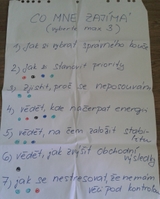 CO MNE ZAJÍMÁ
(vyberte max 3)
1) jak si vybrat správného kouče
2) jak si stanovit priority
3) zjistit, proč se neposouvám
4) vědět, kde načerpat energii
5) vědět, na čem založit stabi-
litu
6) vědět, jak zvýšit obchodní
výsledky
7) jak se nestresovat, že nemám
věci pod kontrolou